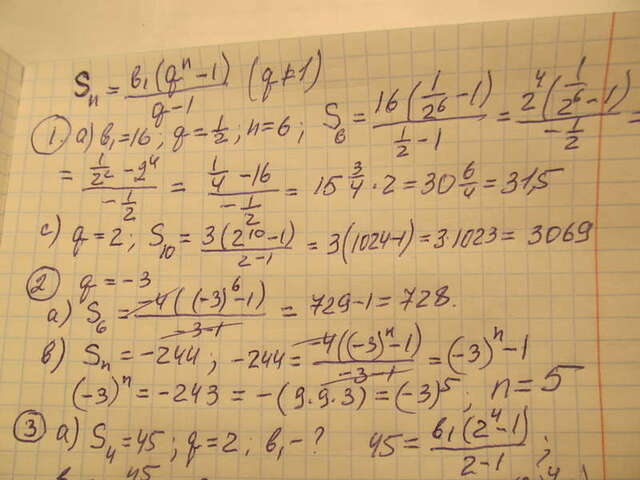 Sₙ = в₁(qⁿ-1)/(q-1) (q≠1)
① а) в₁=16; q=1/2; n=6; S₆ = 16(1/2⁶-1)/(1/2-1) = 2⁴(1/2⁶-1)/(-1/2) =
= (1/2² - 2⁴)/(-1/2) = (1/4 - 16)/(-1/2) = 15 3/4 · 2 = 30 6/4 = 31,5
с) q=2; S₁₀ = 3(2¹⁰-1)/(2-1) = 3(1024-1) = 3·1023 = 3069
② q = -3
а) S₆ = -4((-3)⁶-1)/(-3-1) = 729-1 = 728.
в) Sₙ = -244; -244 = -4((-3)ⁿ-1)/(-3-1) = (-3)ⁿ-1
(-3)ⁿ = -243 = -(9·9·3) = (-3)⁵; n=5
③ а) S₄=45; q=2; в₁-? 45 = в₁(2⁴-1)/(2-1);